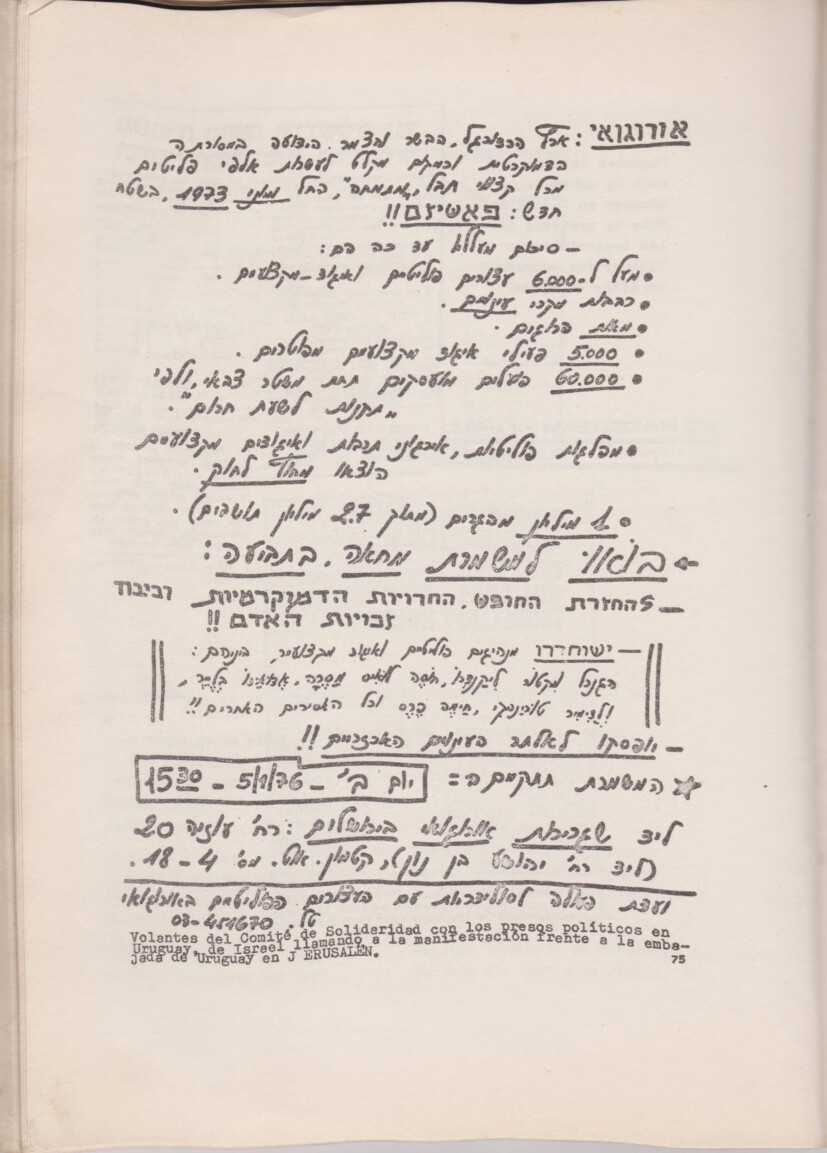 אורוגוואי: ארץ הכדורגל, הבשר והצמר. הידועה במסורתה
הדמוקרטית וכמקום מקלט לעשרות אלפי פליטים
מכל קצווי תבל, "מתמחה", החל מיוני 1973, בשטח
חדש: פאשיזם!!
– סיכום מעלליו עד כה הם:
• מעל ל-6.000 עצורים פוליטיים ואיגוד-מקצועיים.
• רבבות מקרי עינויים.
• מאות הרוגים.
• 5.000 פעילי איגוד מקצועיים מפוטרים.
• 60.000 פועלים מועסקים תחת משטר צבאי, ולפי
"תקנות לשעת חרום".
• מפלגות פוליטיות, אירגוני תרבות ואיגודים מקצועיים
הוצאו מחוץ לחוק.
• 1 מיליון מהגרים (מתוך 2.7 מיליון תושבים).
בואו למשמרת מחאה, בתביעה:
– להחזרת החופש, החרויות הדמוקרטיות וכיבוד
זכויות האדם!!
– ישוחררו מנהיגים פוליטיים ואיגוד מקצועיים, ביניהם:
הגנרל ויקטור ליקנדרו, חוסה לואיס מסרה,
ולדימיר טוריאנסקי, חיימה פרס וכל האסירים האחרים!!
– יופסקו לאלתר העינויים האכזריים!!
המשמרת תתקיים ב= יום ב' – 5/1/76 – 15³⁰
ליד שגרירות אורוגוואי בירושלים: רח' עוזיה 20
(ליד רח' יהושע בן נון, קטמון. אוט. מס' 4 – 18.
ועדת פעולה לסולידריות עם העצורים הפוליטיים באורוגוואי
טל.
Volantes del Comité de Solidaridad con los presos políticos en
Uruguay, de Israel llamando a la manifestación frente a la emba-
jada de Uruguay en J ERUSALÉN.
75